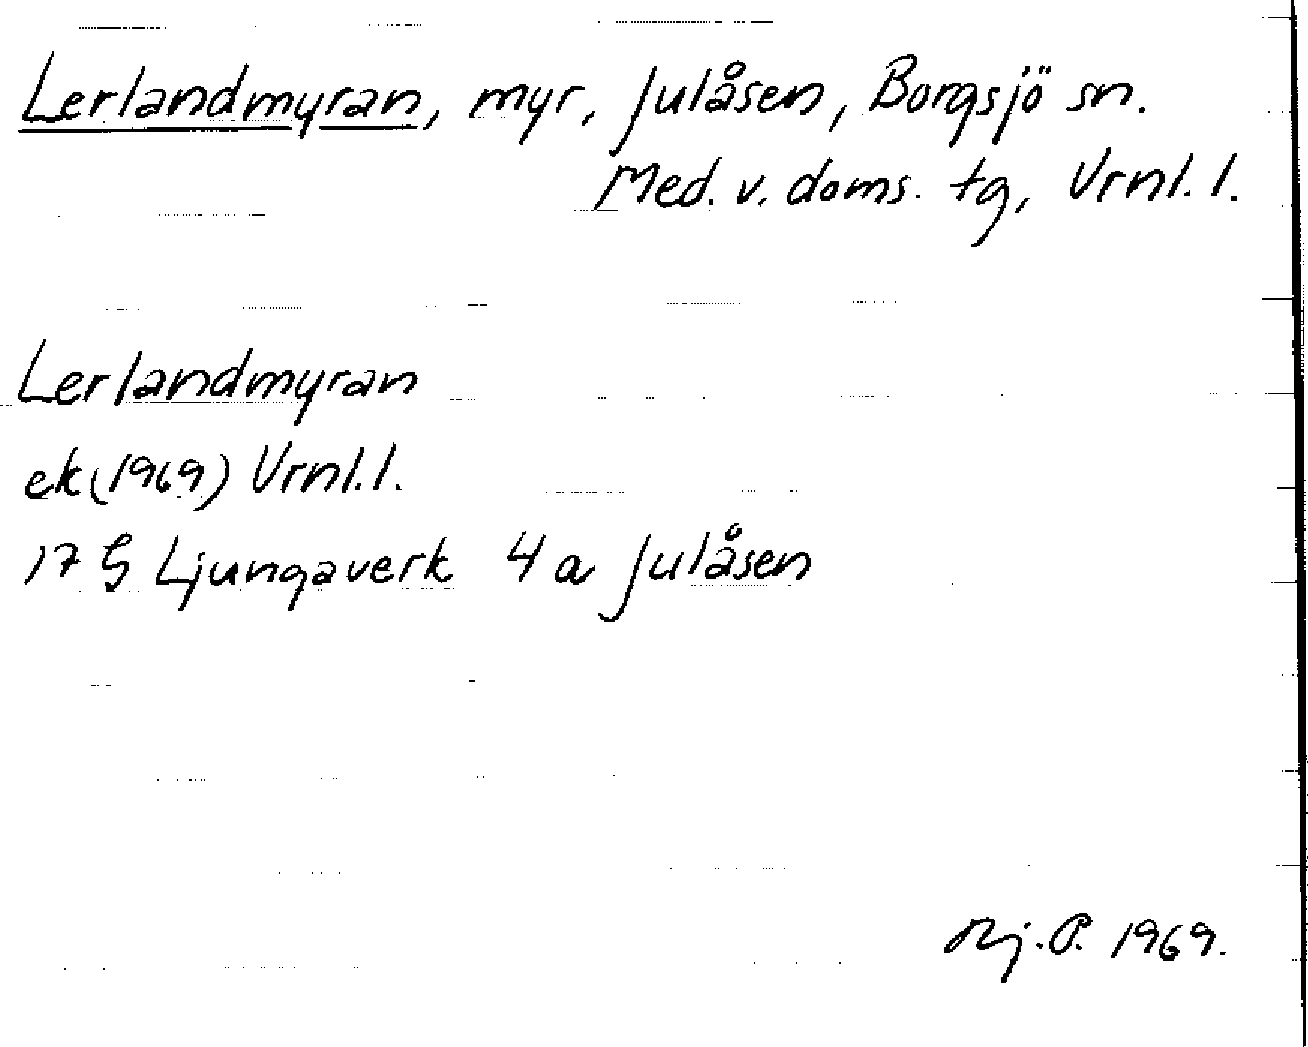 Lerlandmyran, myr, Julåsen, Borgsjö sn.
Med. v. doms. tg, Vrnl. l.
Lerlandmyran
ek (1969) Vrnl. l.
17 G Ljungaverk 4 a Julåsen
Hj. P. 1969.